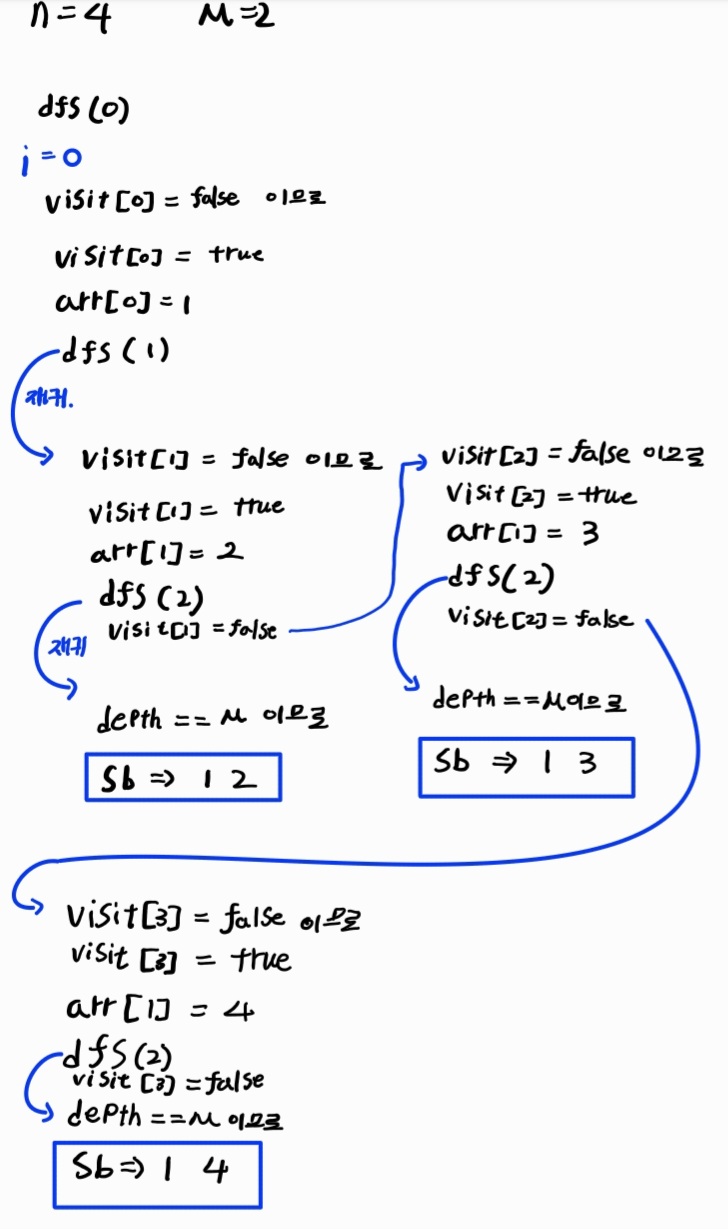 n=4 M=2
dfs(0)
i=0
visit[0] = false 이므로
visit[0] = true
arr[0]=1
dfs(1)
재귀.
visit[1] = false 이므로
visit[1] = true
arr[1]=2
dfs(2)
visit[1] = false
재귀
depth == M 이므로
Sb ⇒ 1 2
visit[2] = false 이므로
visit[2] = true
arr[1] = 3
dfs(2)
visit[2] = false
depth == M이므로
Sb ⇒ 1 3
visit[3] = false 이므로
visit[3] = true
arr[1] = 4
dfs(2)
visit[3] = false
depth == M 이므로
Sb ⇒ 1 4